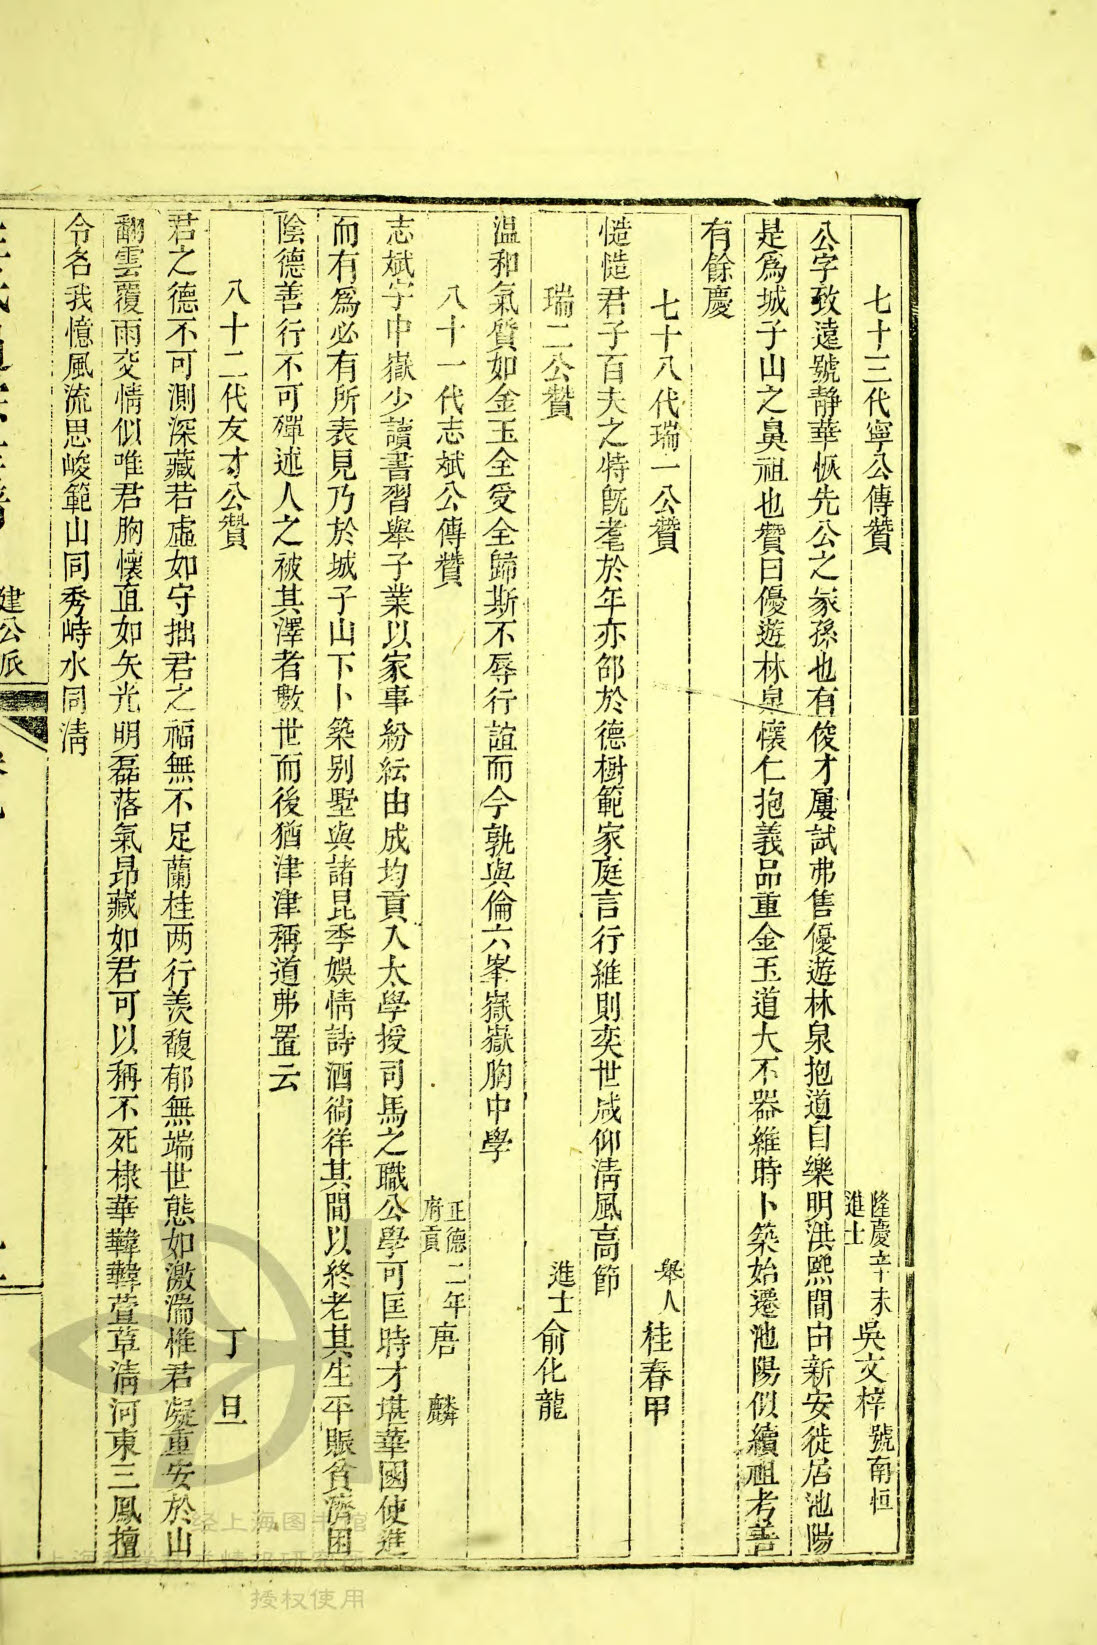 七十三代寧公傳贊 隆慶辛未進士 吳文梓 號南恒
公字致遠號靜華恢先公之冢孫也有俊才屢試弗售優遊林泉抱道自樂明洪熙間由新安徙居池陽
是爲城子山之鼻祖也贊曰優遊林泉懷仁抱義品重金玉道大不器維時卜築始遷池陽似續祖考善
有餘慶
七十八代瑞一公贊 舉人 桂春甲
慥慥君子百夫之特旣耄於年亦邵於德樹範家庭言行維則奕世咸仰淸風高節
瑞二公贊 進士 俞化龍
溫和氣質如金玉全受全歸斯不辱行誼而今孰與倫六峯嶽嶽胸中學
八十一代志斌公傳贊 正德二年府貢 唐麟
志斌字中嶽少讀書習舉子業以家事紛紜由成均貢入太學授司馬之職公學可匡時才堪華國使進
而有爲必有所表見乃於城子山下卜築別墅與諸昆季娛情詩酒徜徉其間以終老其生平賑貧濟困
陰德善行不可殫述人之被其澤者數世而後猶津津稱道弗置云
八十二代友才公贊 丁旦
君之德不可測深藏若虛如守拙君之福無不足蘭桂两行羨馥郁無端世態如激湍惟君凝重安於山
翻雲覆雨交情似唯君胸懷直如矢光明磊落氣昂藏如君可以稱不死棣華韡韡萱草淸河東三鳳擅
令名我憶風流思峻範山同秀峙水同淸
建公派